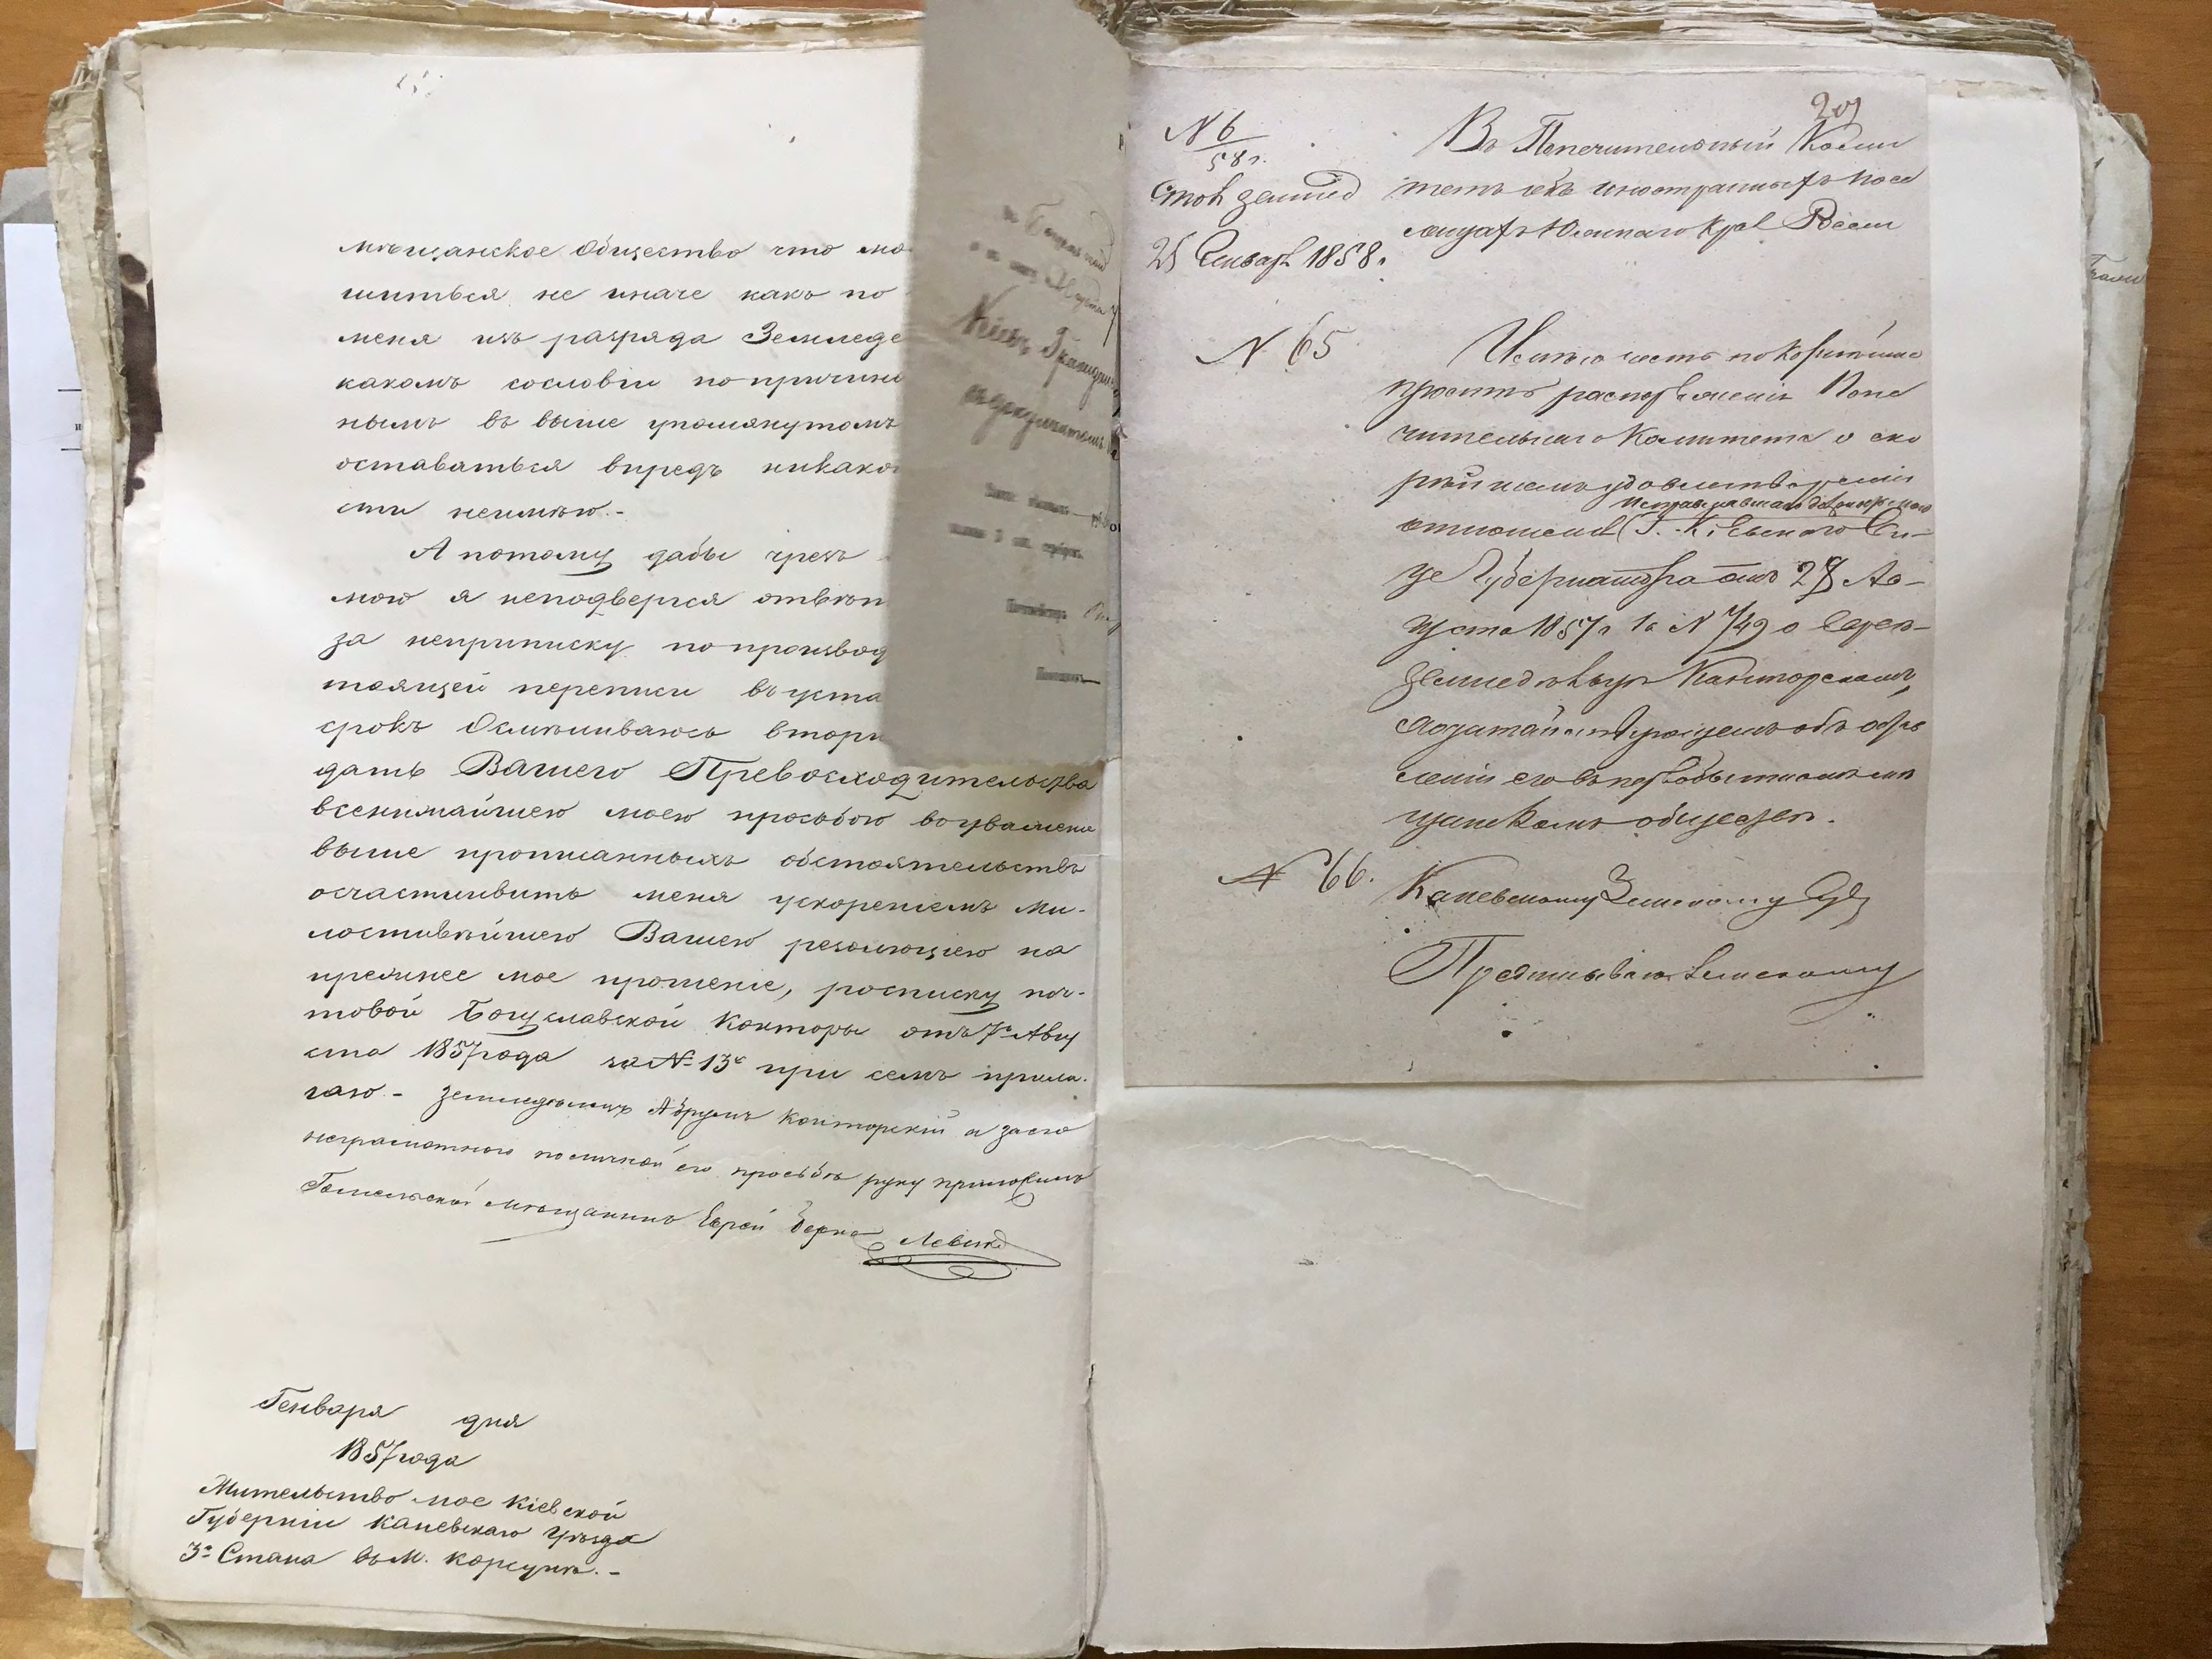 мѣщанское Общество что мо
шиться не иначе какъ по
меня изъ разряда Земледе
какомъ сословіи по причине
нымъ въ выше упомянутомъ
оставаться впредъ никако
сти неимѣю.-
А потому дабы чрезъ
мою я неподвергся отвѣт
за неприписку по производ
тоящей переписи въ уста
срокъ Осмѣливаюсь втори
дать Вашего Превосходительства
всенижайшею моею просьбою воуваженіе
выше прописанныхъ обстоятельствъ
осчастливить меня ускореніемъ Ми-
лостивѣйшею Вашею резолюціею на
прежнее мое прошеніе, росписку поч-
товой Богуславской Конторы отъ 7 Авгу
ста 1857 года за № 13 при семъ прила-
гаю.- Земледѣлецъ Абрумъ Конторскій а за его
неграмотного по личной его просьбѣ руку приложилъ
Гомельской мѣщанинъ Еврей Берка Левинъ
Генваря дня
1857 года
Жительство мое Кіевской
Губерніи Каневскаго уѣзда
3 Стана въ М. Корсунѣ.-
209
N 6
58 г.
Столъ земед
25 Января 1858 г.
Въ Попечительный Коми
тетъ объ иностранныхъ посе
ленцахъ Южнаго Края Россіи
N 65
Имѣю честь покорнѣйше
просить распоряженія Попе
чительнаго Комитета о ско
рѣйшемъ удовлетвореніи
отношенія Г. Кіевскаго Ви-
це Губернатора отъ 28 Ав-
густа 1857 г за N 749 о Евреѣ-
земледѣльцѣ Канторскомъ,
ходатайствующемъ объ остав
леніи его въ первобытномъ мѣ
щанскомъ обществѣ.
N 66.
Каневскому Земскому Суду
Предписываю Земскому